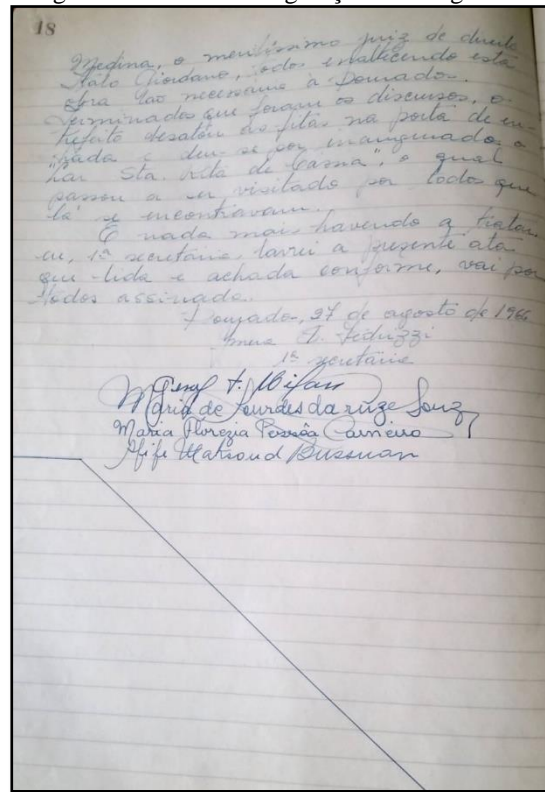 18
Medina, o meritíssimo juiz de direito
Ítalo Giordano, todos enaltecendo esta
obra tão necessária à Dourados.
Terminados que foram os discursos, o
Prefeito desatou as fitas na porta de en-
trada e deu-se por inaugurado o
"Lar Sta. Rita de Cassia", o qual
passou a ser visitado por todos que
lá se encontravam.
E nada mais havendo a tratar
eu, 1ª secretária, lavrei a presente ata
que lida e achada conforme, vai por
todos assinada.
Dourados, 27 de agosto de 1966
1ª secretária
Maria de Lourdes da Cruz Souz
Maria Florezia Pessôa Carneiro
Afife Bussuan